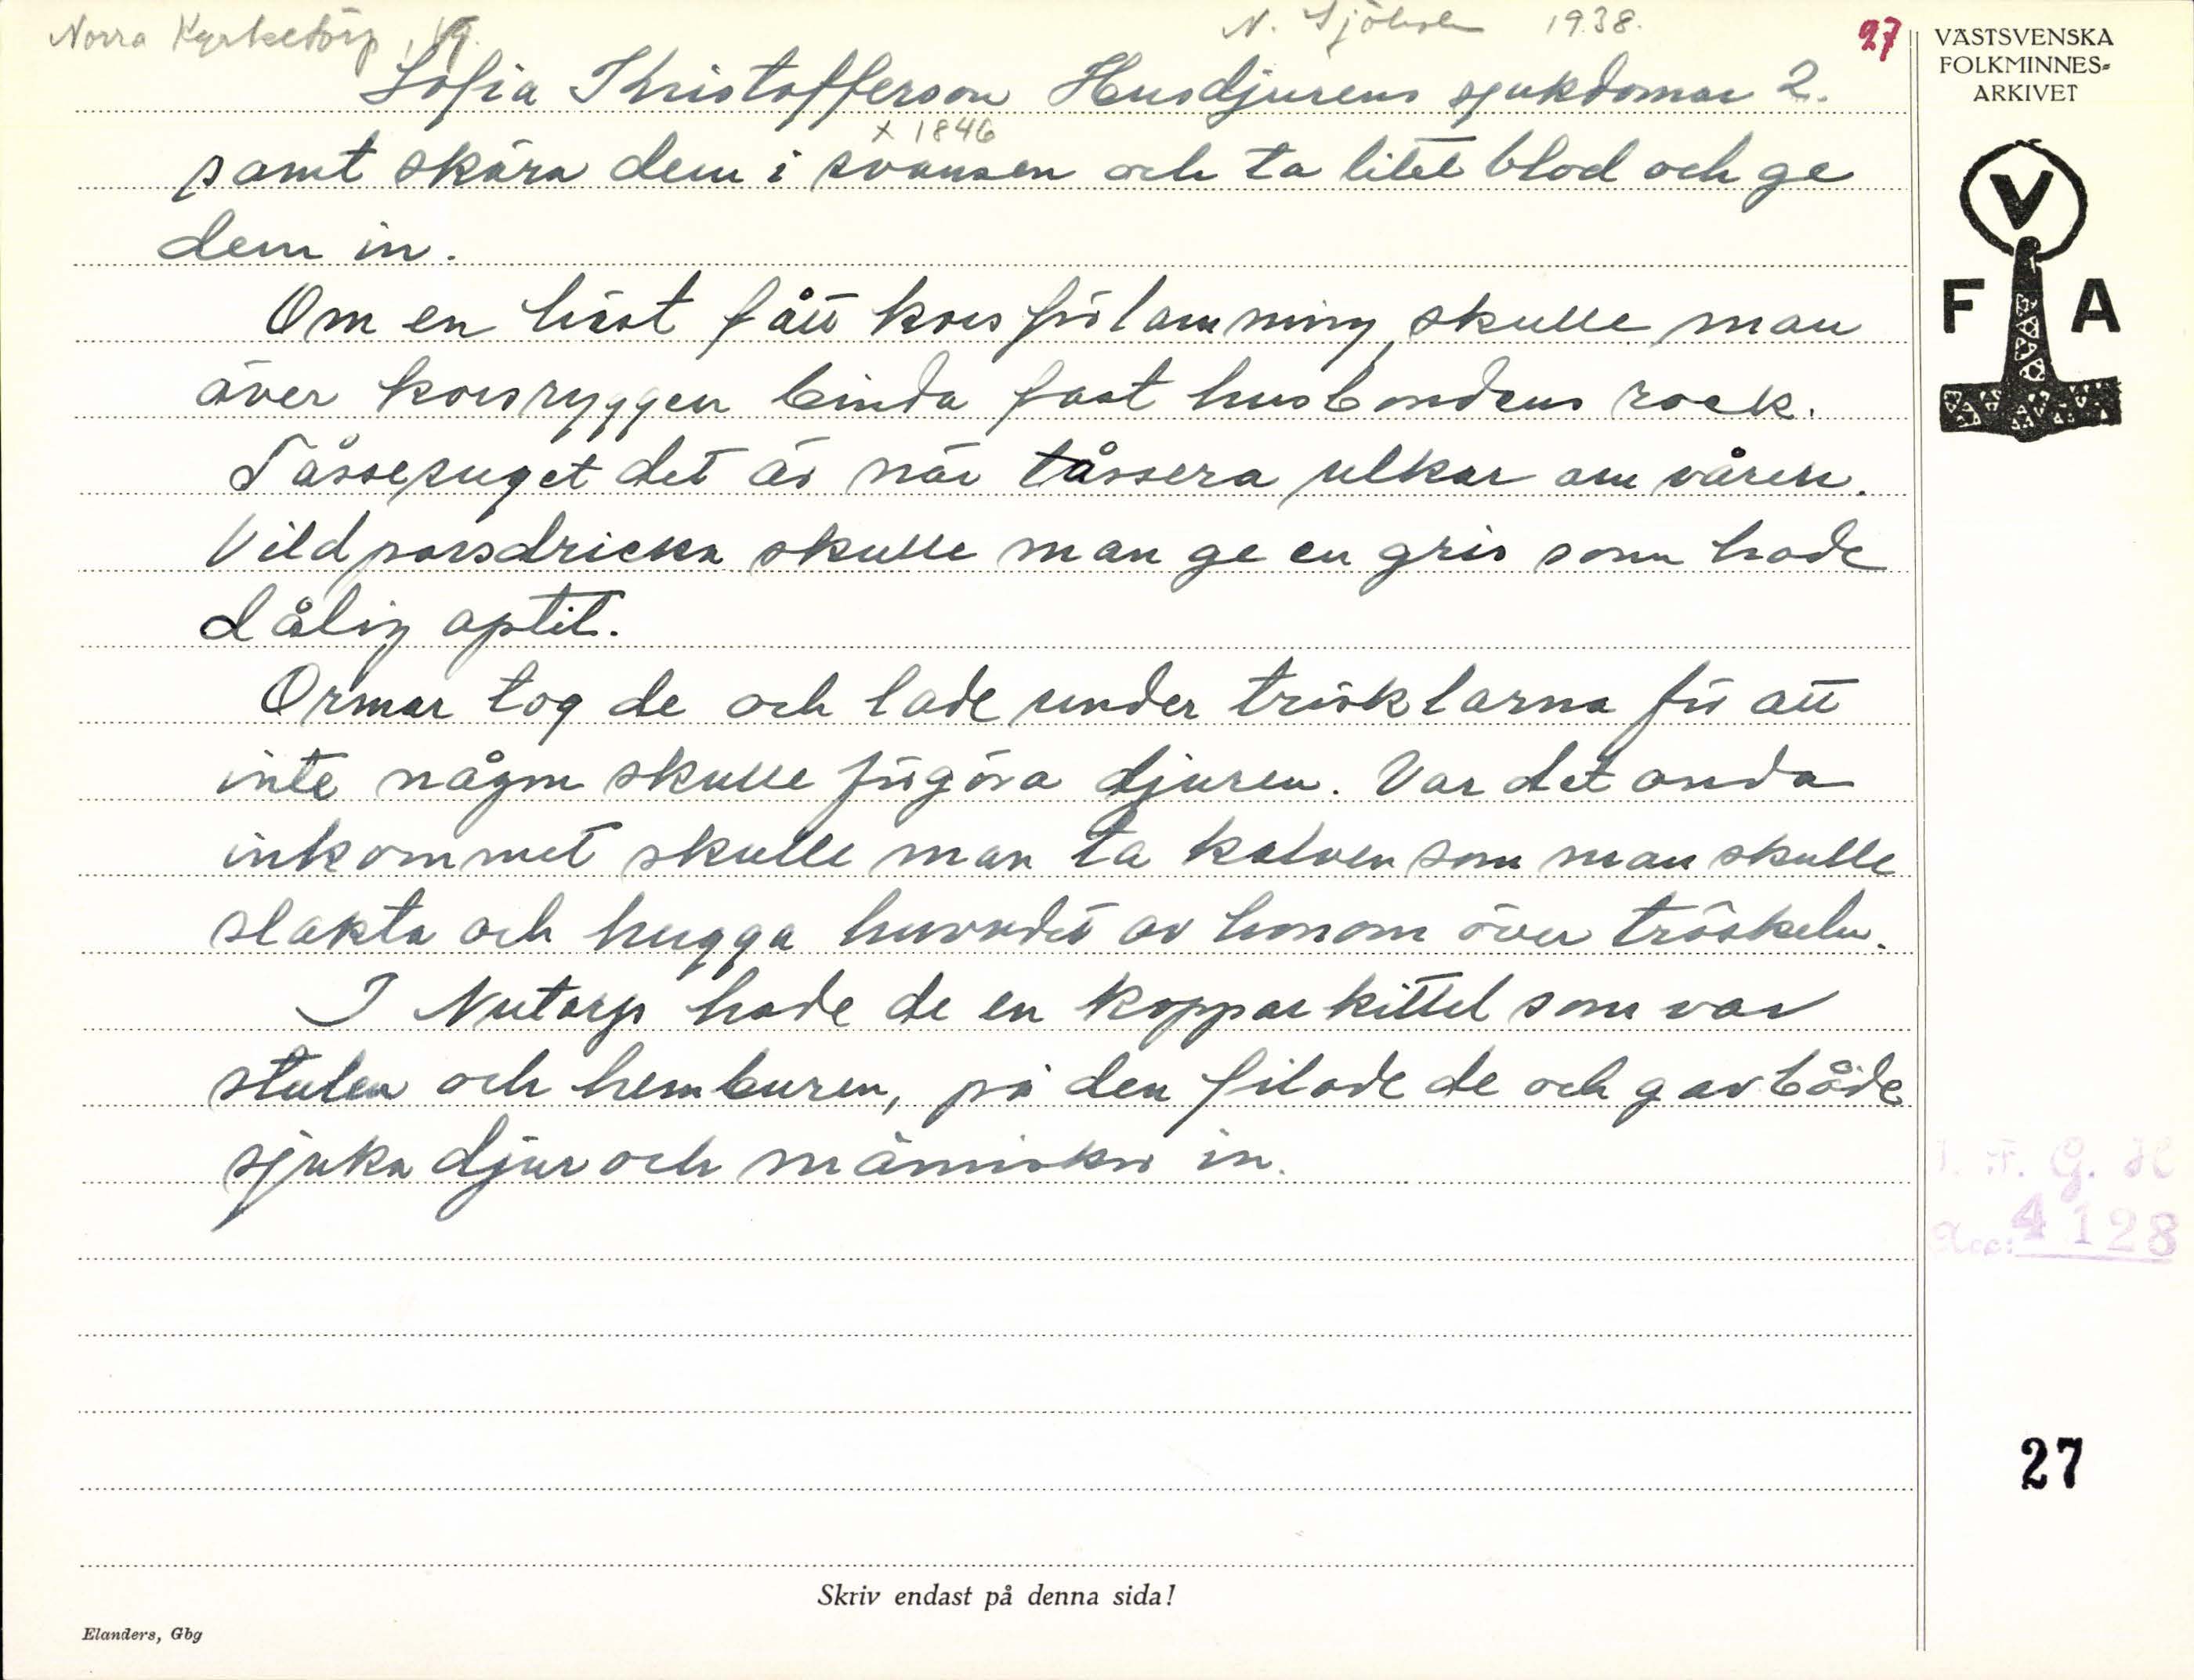 Norra Kyrketorp, Vg. N. Sjöholm 1938. 27
Sofia Kristofferson Husdjurens sjukdomar 2.
x 1846
samt skära dem i svansen och ta litet blod och ge
dem in.
Om en häst fått korsförlamning, skulle man
över korsryggen binda fast husbondens rock.
Tåssesuget det är när tåssera ulkar om våren.
Vildporsdricka skulle man ge en gris som hade
dålig aptit.
Ormar tog de och lade under trösklarna för att
inte någon skulle förgöra djuren. Var det onda
inkommet skulle man ta kalven som man skulle
slakta och hugga huvudet av honom över tröskeln.
I Nutorp hade de en kopparkittel som var
stulen och hemburen, på den filade de och gav både
sjuka djur och människor in.
VÄSTSVENSKA
FOLKMINNES-
ARKIVET
V
F A
I. F. G. H
Acc: 4128
27
Skriv endast på denna sida!
Elanders, Gbg